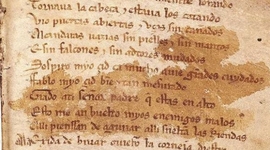 mientre lorando
Tornaua la cabeça & estaua los catando
Vio puertas abiertas & vços sin cañados
Alcandaras uazias sin pielles & sin mantos
E sin falcones & sin adtores mudados
Sospiro myo çid ca mucho auie grandes cuydados
Fablo myo çid bien & tan mesurado
Grado ati señor padre que estas en alto
Esto me an buelto myos enemigos malos
Alli pienssan de aguijar alli sueltan las Riendas
Ala Exida de biuar ouieron la corneia diestra